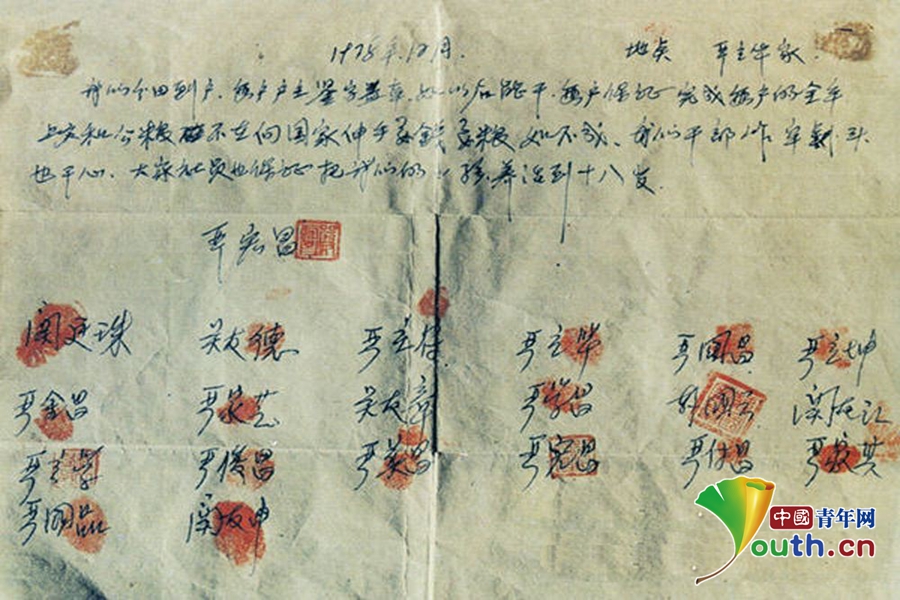 1978年12月. 地点 严立华家.
我们分田到户, 每户户主签字盖章, 如以后能干, 每户保证完成每户的全年
上交和公粮 不在向国家伸手要钱要粮 如不成, 我们干部作牢刹头
也干心, 大家社员也保证把我们的小孩养活到十八岁.
严宏昌
关廷珠 关友德 严立符 严立华 严国昌 严立坤
严金昌 严家芝 关友章 严学昌 韩国云 关友江
严立学 严俊昌 严美昌 严宏昌 严付昌 严家其
严国品 关友申
中國青年网
youth.cn